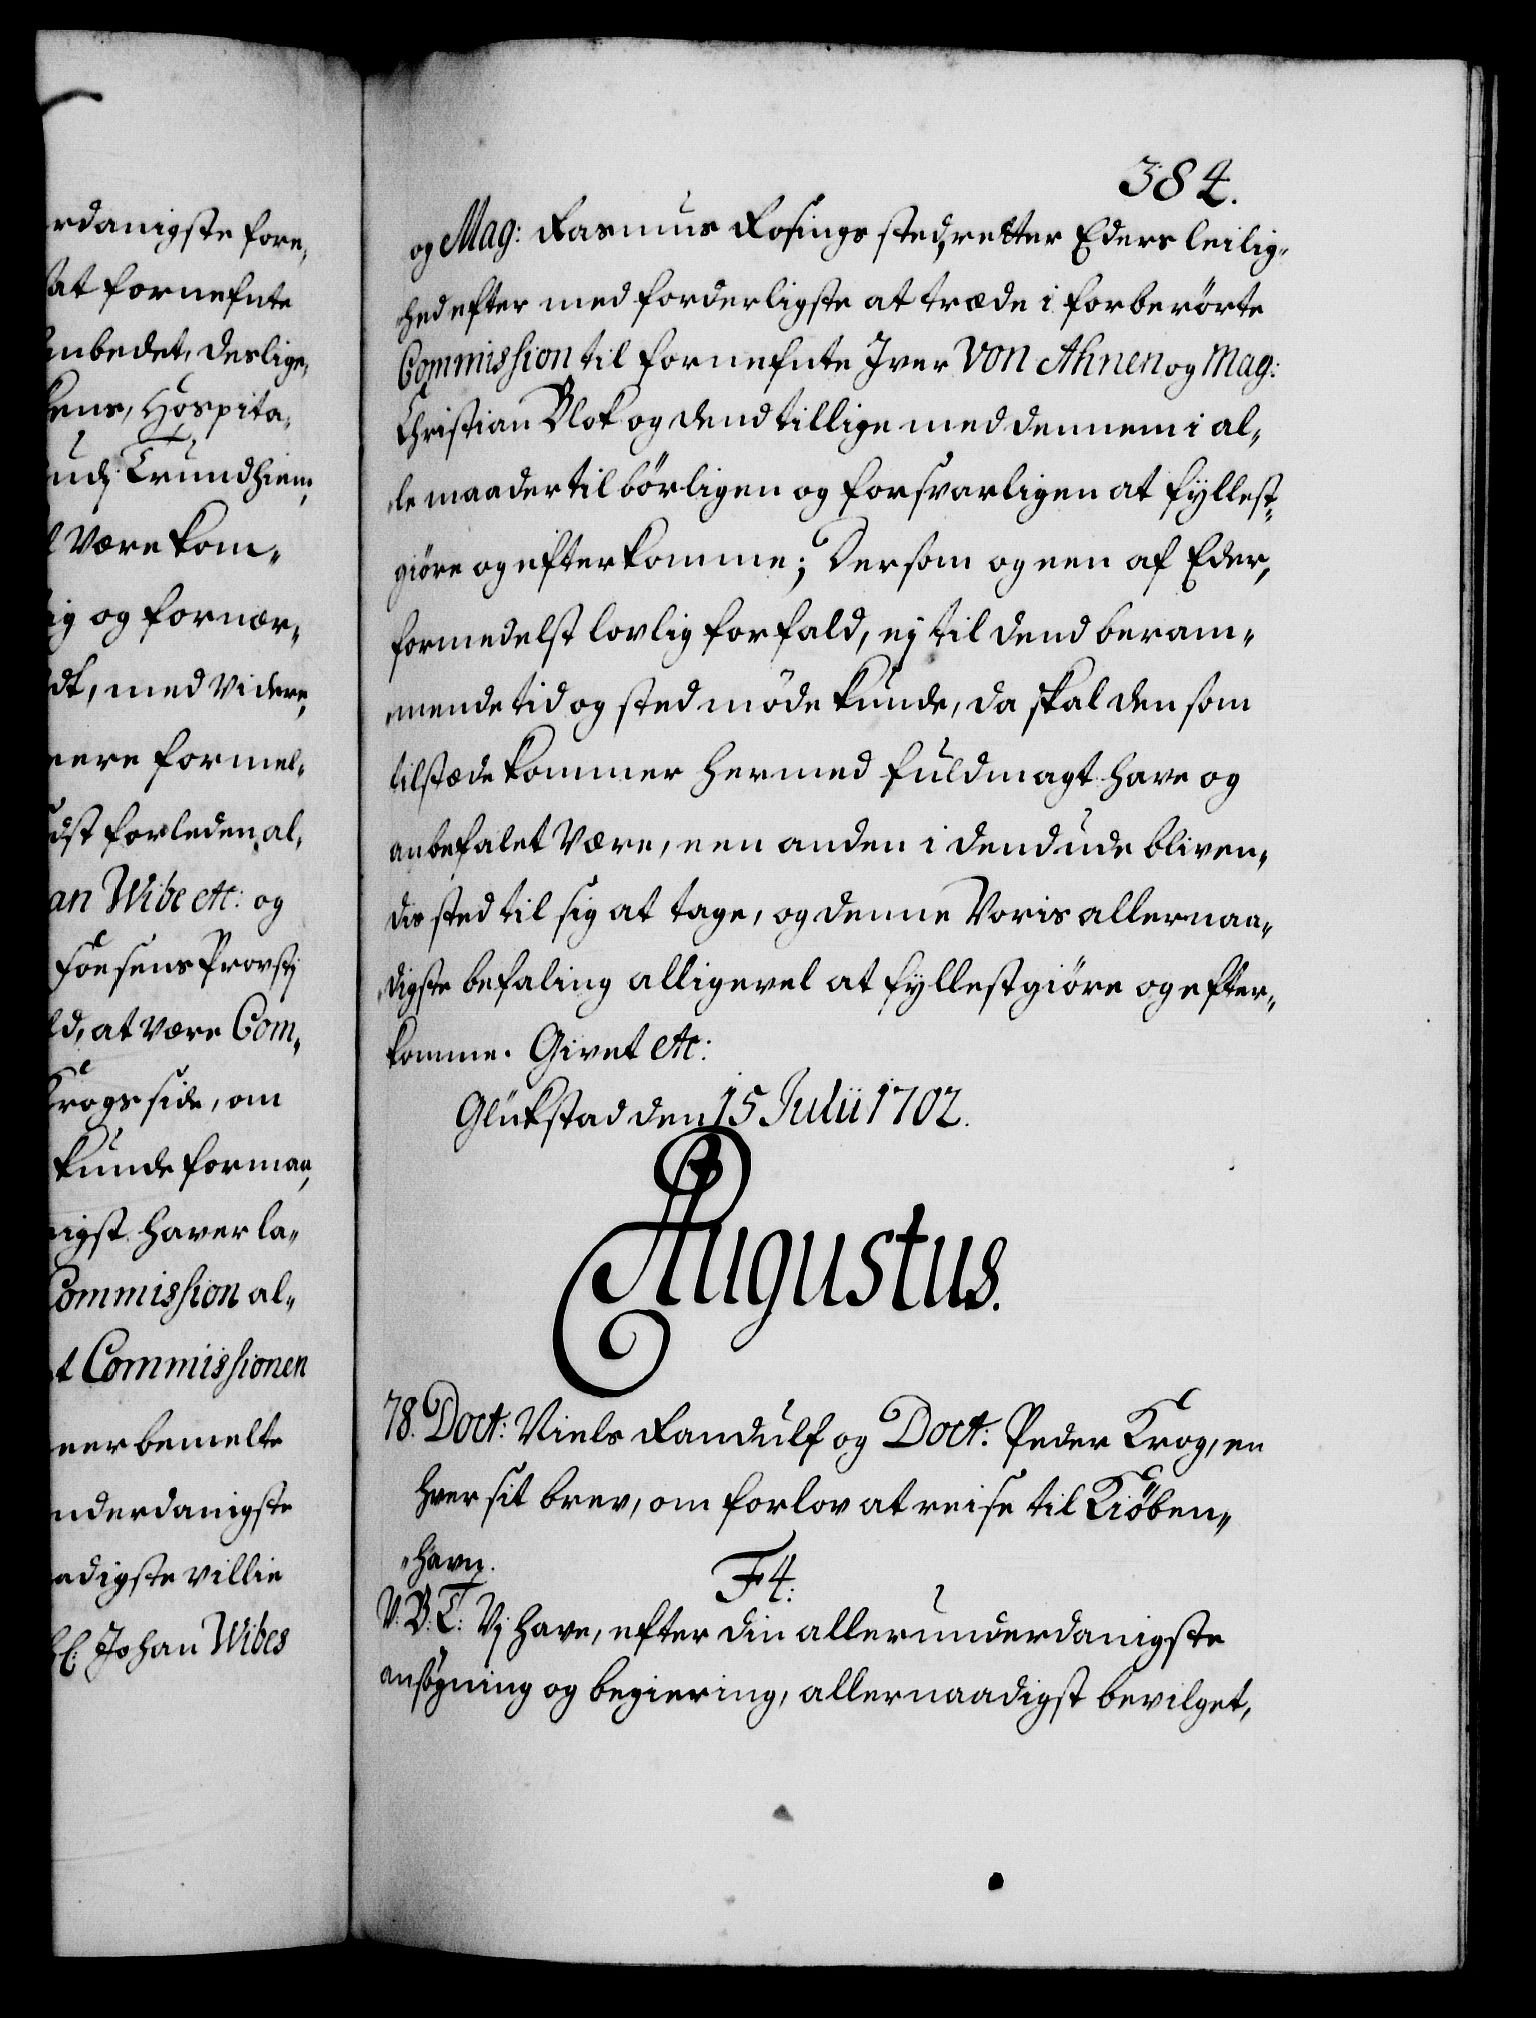 rdanigste fore„
at fornefnte
nbedet, deslige„
ens, Hospita„
udj Trundhiem„
Være kom„
ig og fornær„
dt, med Videre„
ere formel„
dst forleden al„
an Wibe etc: og
Foesens Provstj
ld, at Være Com„
Krogs side, om
kunde formaa„
igst haver la„
Commission al„
t Commissionen
eerbemelte
nderdanigste
adigste villie
Sl: Johan Wibes
384.
og Mag: Rasmus Rosings sted, retter Eders leilig„
hed efter med forderligste at træde i forberörte
Commission til fornefnte Iver Von Ahnen og Mag:
Christian Blok og dend tillige med dennem i al„
le maader tilbörligen og forsvarligen at fyllest„
giöre og efterkomme; Dersom og een af Eder,
formedelst lovlig forfald, ej til dend beram„
mende tid og sted möde kunde, da skal den som
tilstæde kommer hermed fuldmagt have og
anbefalet Være, een anden i dend udebliven„
dis sted til sig at tage, og denne Voris allernaa„
digste befaling alligevel at fyllestgiöre og efter„
komme. Givet etc:
Glükstad den 15 Julii 1702.
Augustus.
78. Doct: Niels Randulf og Doct: Peder Krog, en
hver sit brev, om forlov at reise til Kiöben„
„havn.
F4:
V: B: T: Vj have, efter din allerunderdanigste
ansögning og begiering, allernaadigst bevilget,